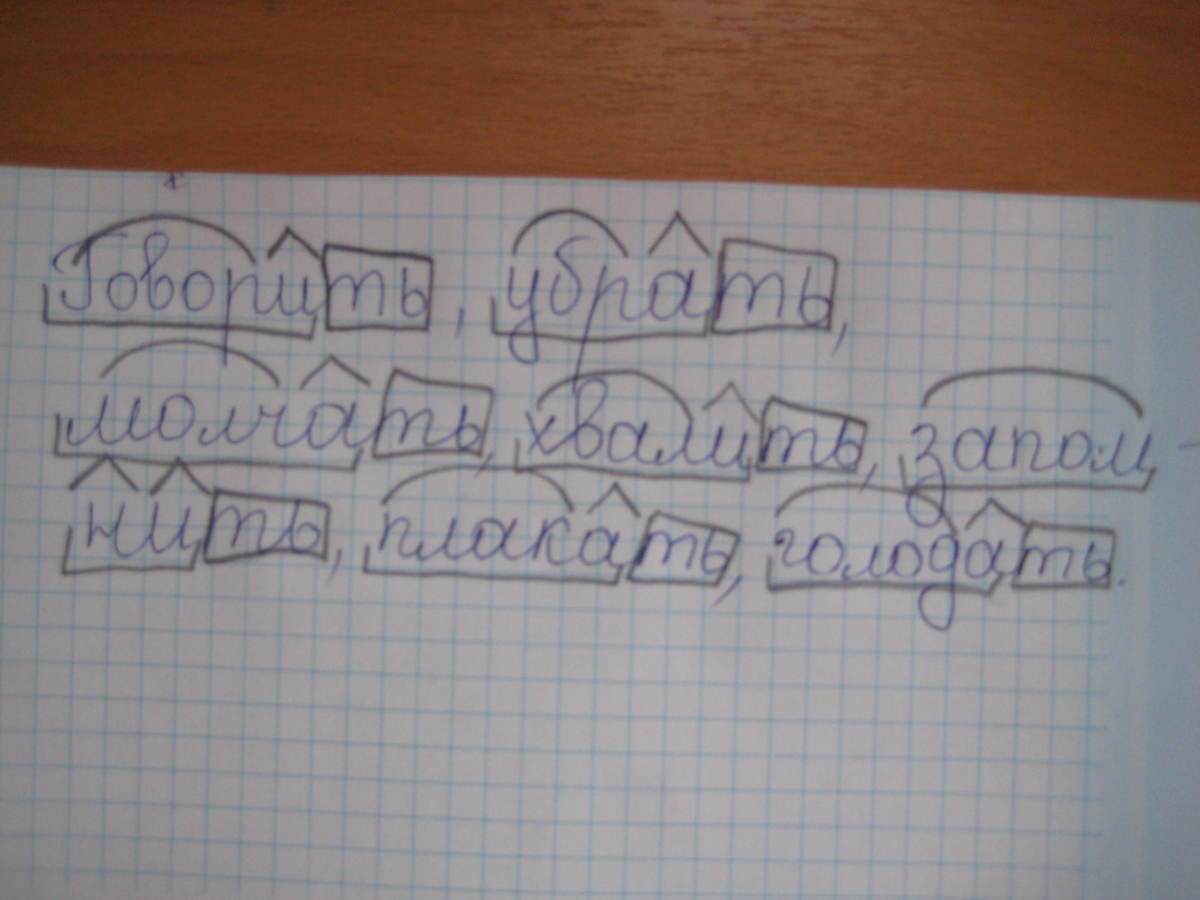 Говорить, убрать,
молчать, хвалить, запом-
нить, плакать, голодать.